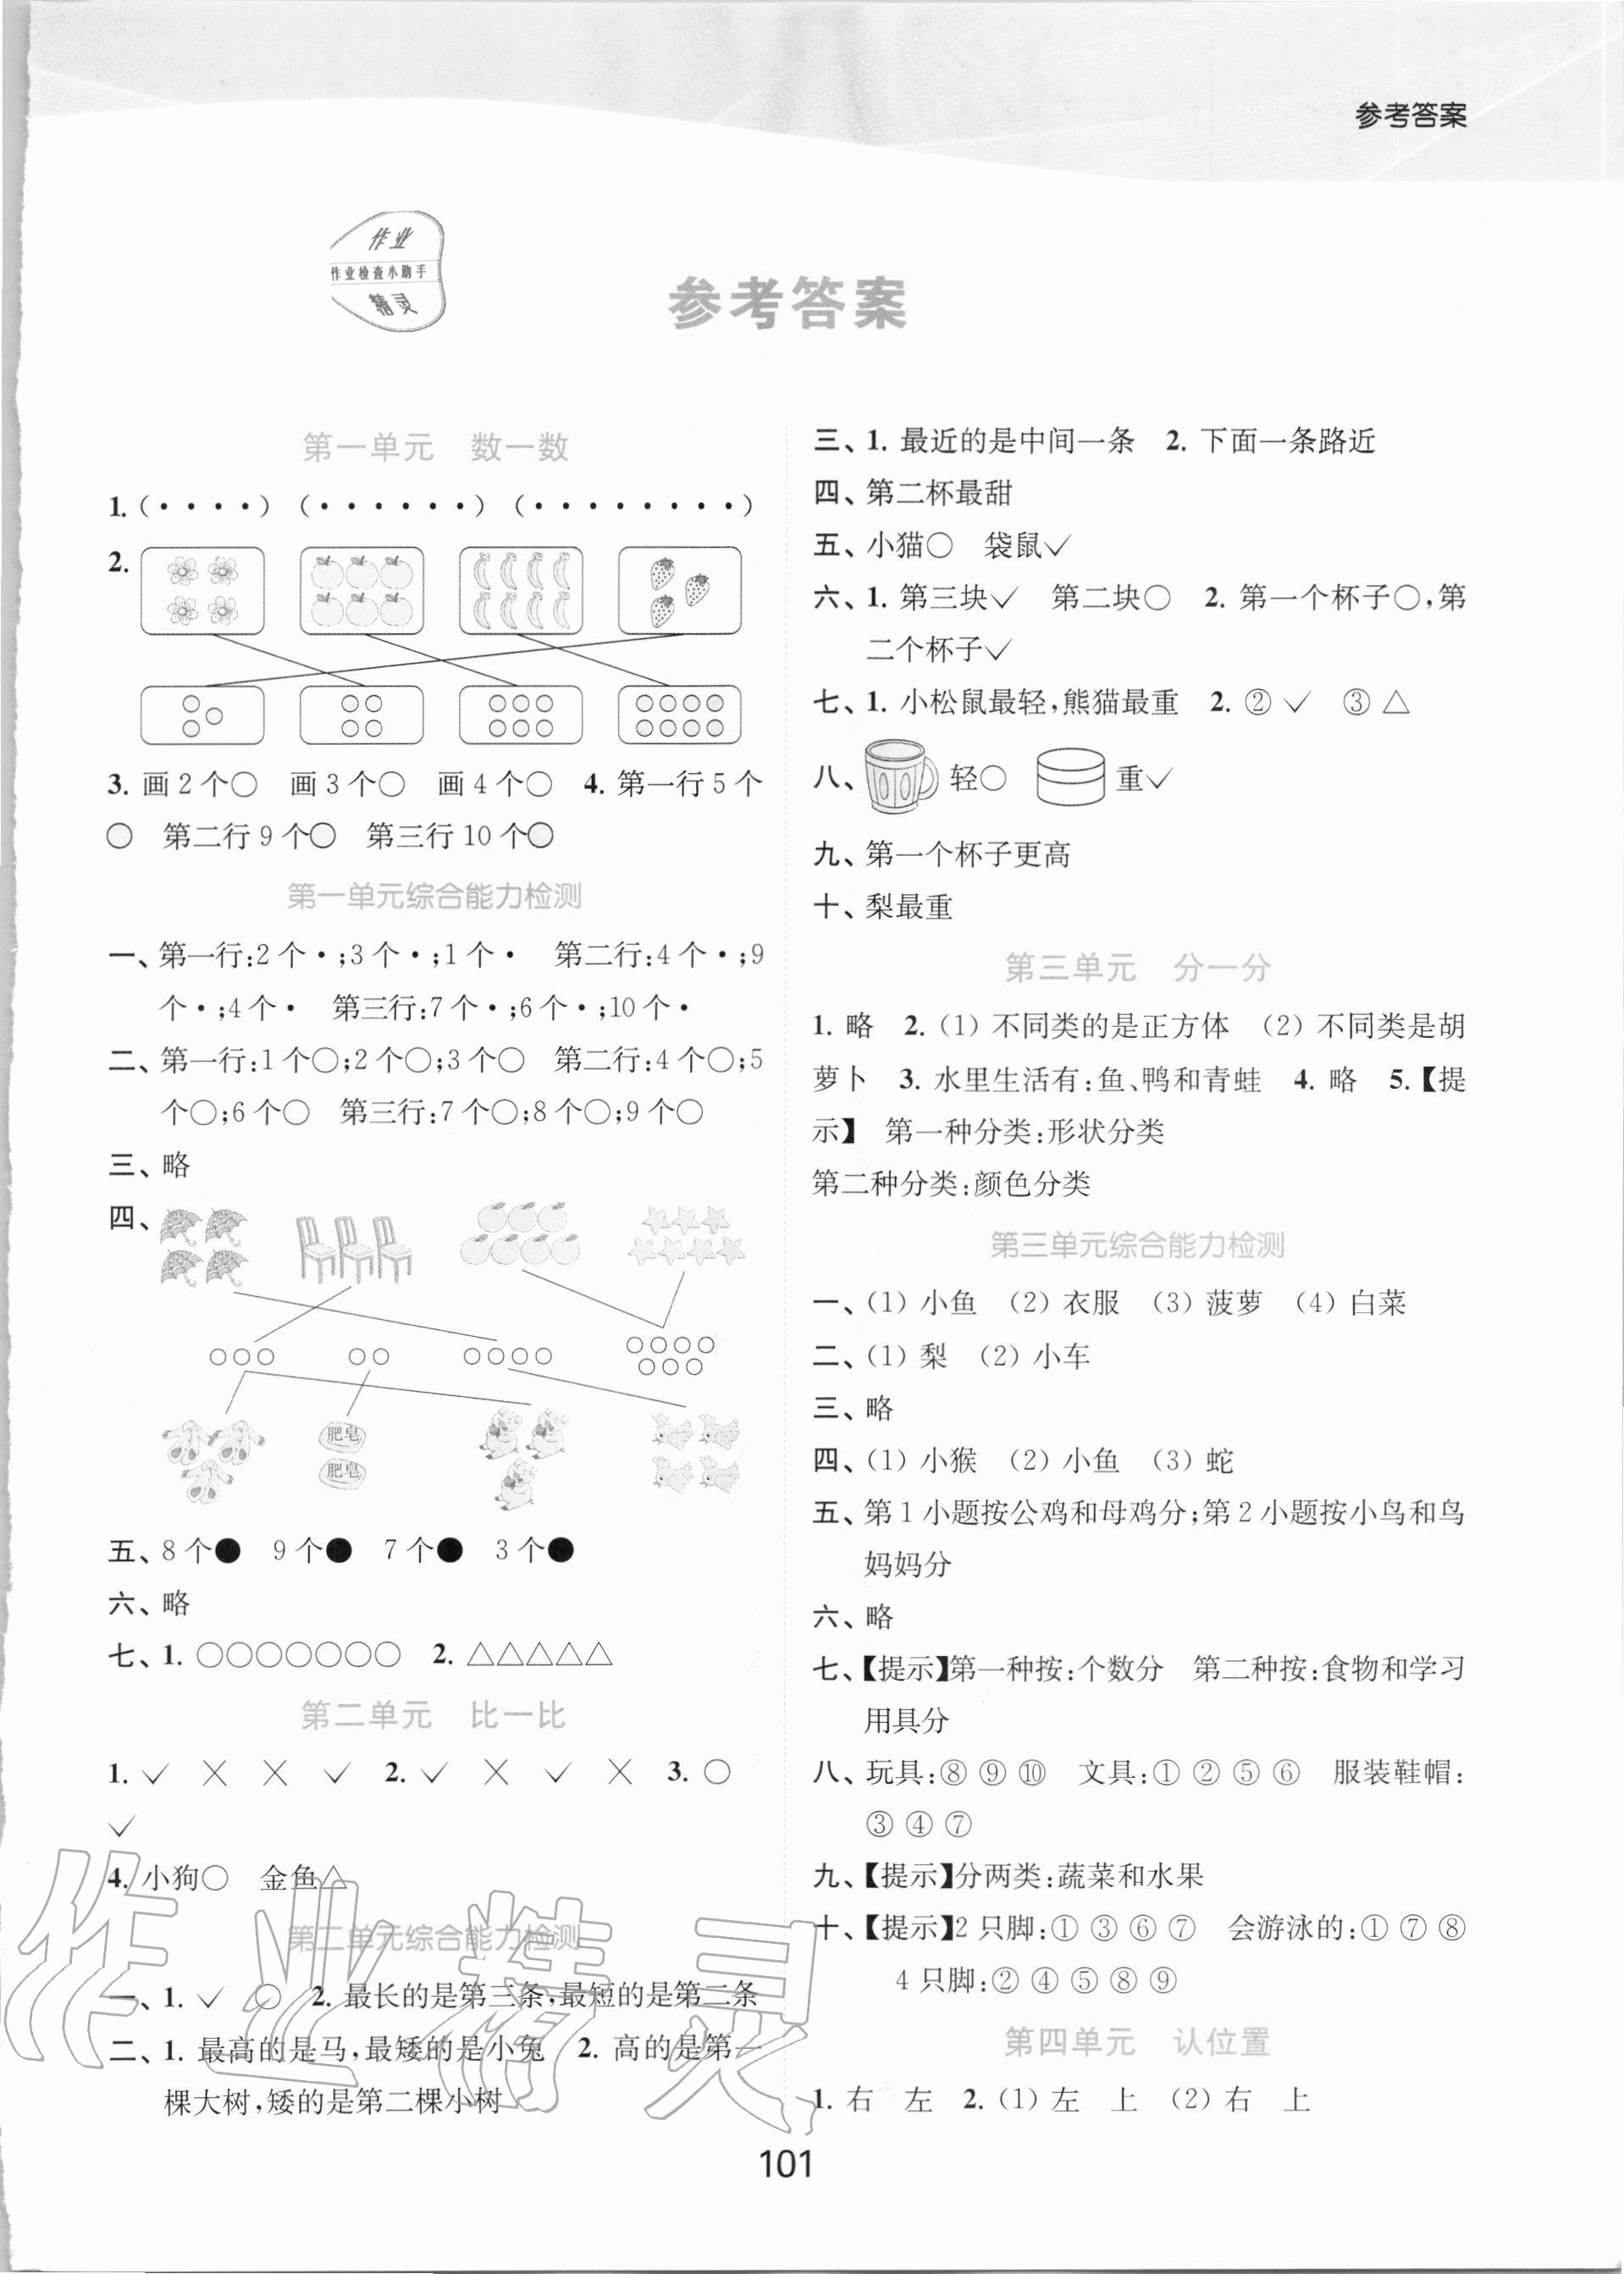 参考答案
作业
作业检查小助手
精灵
参考答案
第一单元 数一数
1.(····) (······) (········)
2.
3. 画2个○ 画3个○ 画4个○ 4. 第一行5个
○ 第二行9个○ 第三行10个○
第一单元综合能力检测
一、第一行:2个·;3个·;1个· 第二行:4个·;9
个·;4个· 第三行:7个·;6个·;10个·
二、第一行:1个○;2个○;3个○ 第二行:4个○;5
个○;6个○ 第三行:7个○;8个○;9个○
三、略
四、
肥皂
肥皂
五、8个● 9个● 7个● 3个●
六、略
七、1. ○○○○○○○ 2. △△△△△
第二单元 比一比
1. ✓ × × ✓ 2. ✓ × ✓ × 3. ○
✓
4. 小狗○ 金鱼△
第二单元综合能力检测
一、1. ✓ ○ 2. 最长的是第三条,最短的是第二条
二、1. 最高的是马,最矮的是小兔 2. 高的是第一
棵大树,矮的是第二棵小树
三、1. 最近的是中间一条 2. 下面一条路近
四、第二杯最甜
五、小猫○ 袋鼠✓
六、1. 第三块✓ 第二块○ 2. 第一个杯子○,第
二个杯子✓
七、1. 小松鼠最轻,熊猫最重 2. ② ✓ ③ △
八、 轻○ 重✓
九、第一个杯子更高
十、梨最重
第三单元 分一分
1. 略 2.(1) 不同类的是正方体 (2) 不同类是胡
萝卜 3. 水里生活有:鱼、鸭和青蛙 4. 略 5.【提
示】 第一种分类:形状分类
第二种分类:颜色分类
第三单元综合能力检测
一、(1) 小鱼 (2) 衣服 (3) 菠萝 (4) 白菜
二、(1) 梨 (2) 小车
三、略
四、(1) 小猴 (2) 小鱼 (3) 蛇
五、第1小题按公鸡和母鸡分;第2小题按小鸟和鸟
妈妈分
六、略
七、【提示】第一种按:个数分 第二种按:食物和学习
用具分
八、玩具:⑧ ⑨ ⑩ 文具:① ② ⑤ ⑥ 服装鞋帽:
③ ④ ⑦
九、【提示】分两类:蔬菜和水果
十、【提示】2只脚:① ③ ⑥ ⑦ 会游泳的:① ⑦ ⑧
4只脚:② ④ ⑤ ⑧ ⑨
第四单元 认位置
1. 右 左 2.(1) 左 上 (2) 右 上
作业精灵
101